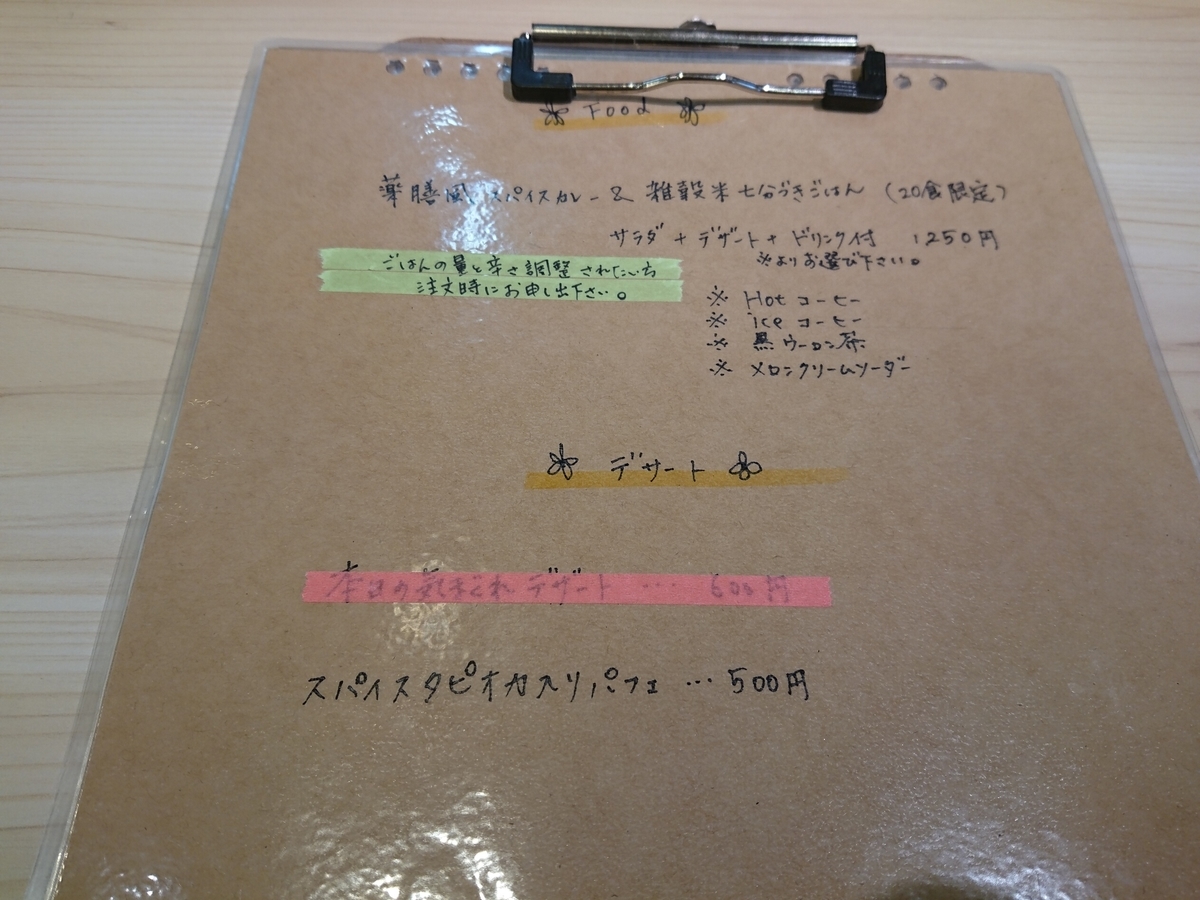 Food
薬膳風スパイスカレー & 雑穀米七分づきごはん (20食限定)
サラダ + デザート + ドリンク付 1250円
※よりお選び下さい。
ごはんの量と辛さ調整されたい方
注文時にお申し出下さい。
※ Hot コーヒー
※ ice コーヒー
※ 黒ウーロン茶
※ メロンクリームソーダー
デザート
本日の気まぐれデザート … 600円
スパイスタピオカ入りパフェ … 500円